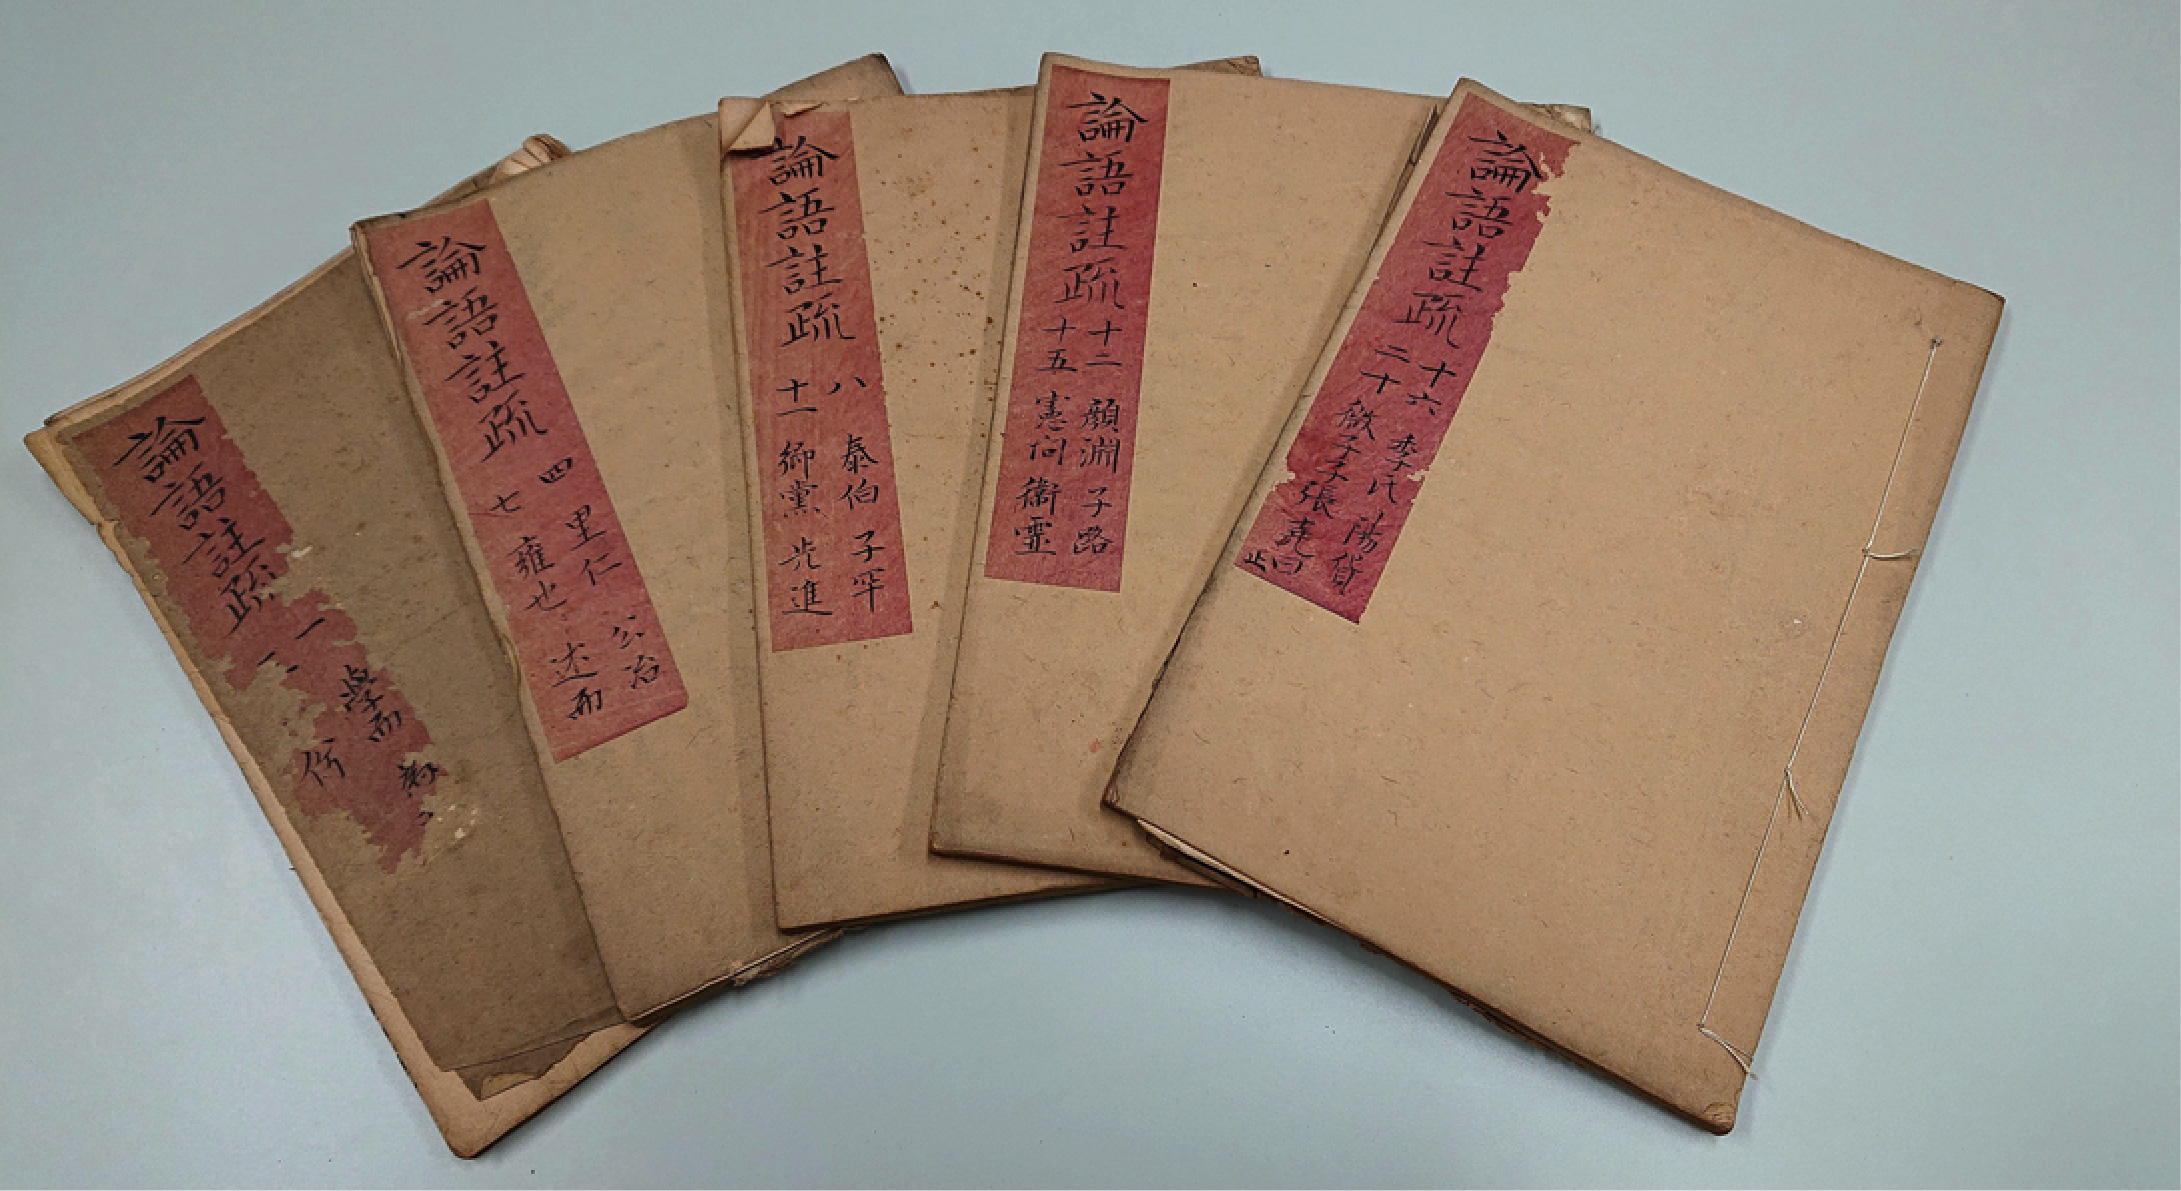 論語註疏
一 學而
三 佾
論語註疏
四 里仁 公冶
七 雍也 述而
論語註疏
八 泰伯 子罕
十一 鄉黨 先進
論語註疏
十二 顏淵 子路
十五 憲问 衞灵
論語註疏
十六 季氏 陽貨
二十 㣲子子張堯曰
止